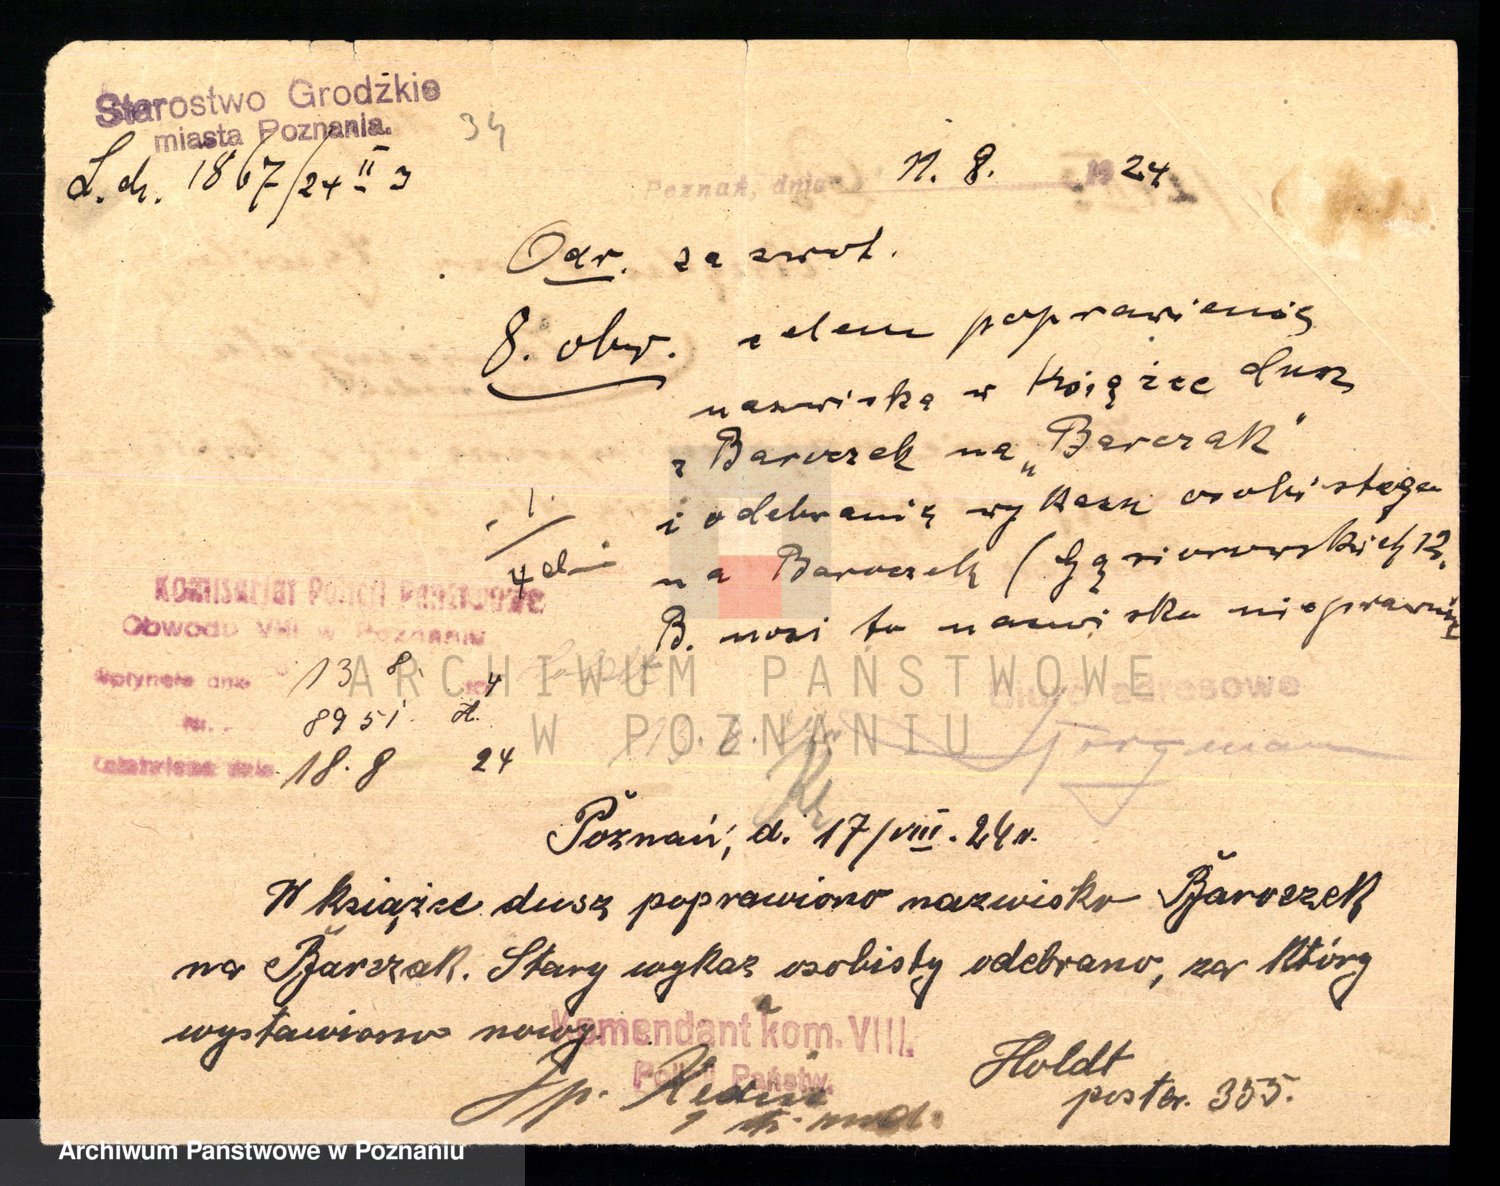 Starostwo Grodzkie
miasta Poznania.
34
L. dz. 1867/24 II 3
Poznań, dnia 11. 8. 1924
Odr. za zwrot.
8. obw. celem poprawienia
nazwiska w książce dusz
z Baroczek na „Barczak"
i odebranią wykazu osobistego
na Baroczek (Gąsiorowskich 12.
B. nosi to nazwisko nieprawnie
1/4 dni
Komisariat Policji Państwowej
Obwodu VIII w Poznaniu
Wpłynęło dnia 13 8. 1924
Nr. 8951. H.
Załatwiono dnia 18. 8 24
Biuro adresowe
Poznań, d. 17/VIII. 24 r.
W książce dusz poprawiono nazwisko Baroczek
na Barczak. Stary wykaz osobisty odebrano, za który
wystawiono nowy.
Komendant kom. VIII.
Policji Państw.
Holdt
poster. 355.
ARCHIWUM PAŃSTWOWE
W POZNANIU
Archiwum Państwowe w Poznaniu